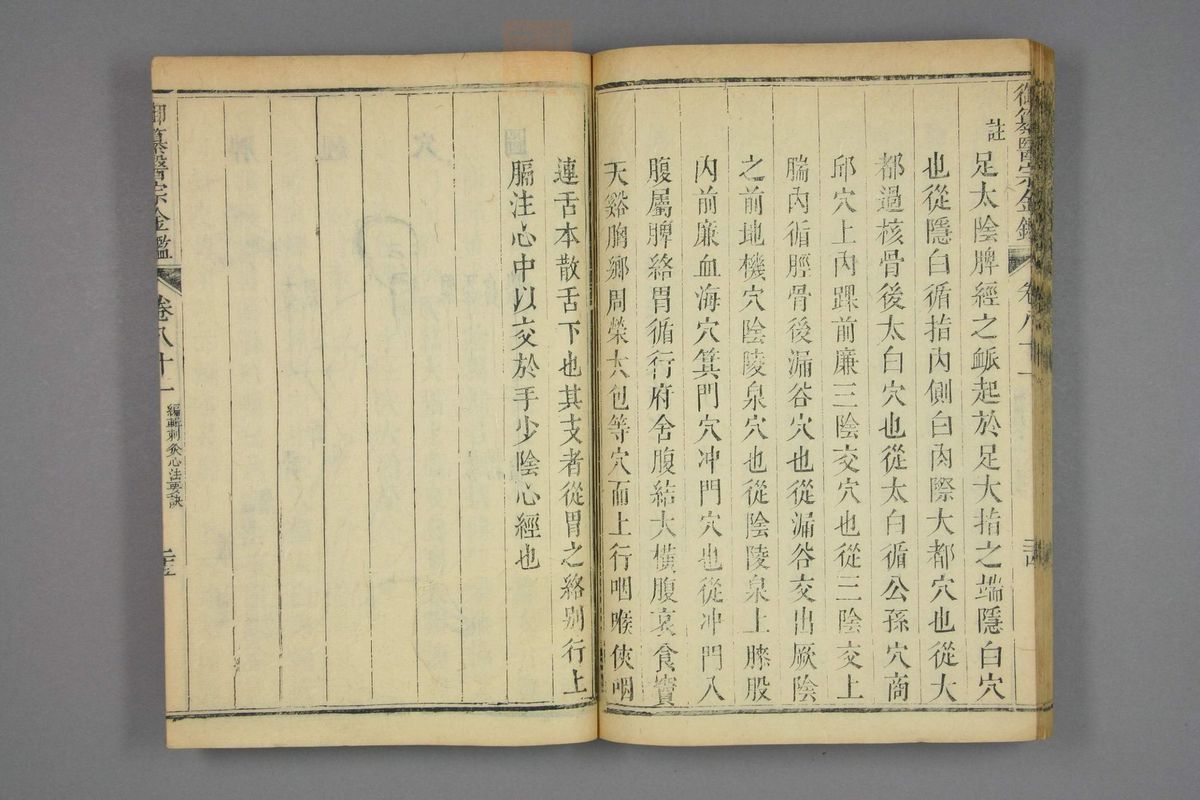 御纂醫宗金鑑
卷八十一
註
足太陰脾經之脈起於足大指之端隱白穴
也從隱白循指內側白內際大都穴也從大
都過核骨後太白穴也從太白循公孫穴商
邱穴上內踝前廉三陰交穴也從三陰交上
腨內循脛骨後漏谷穴也從漏谷交出厥陰
之前地機穴陰陵泉穴也從陰陵泉上膝股
內前廉血海穴箕門穴冲門穴也從冲門入
腹屬脾絡胃循行府舍腹結大橫腹哀食竇
天谿胸鄉周榮大包等穴而上行咽喉俠咽
連舌本散舌下也其支者從胃之絡別行上
膈注心中以交於手少陰心經也
御纂醫宗金鑑
卷八十一
編輯刺灸心法要訣
二十五